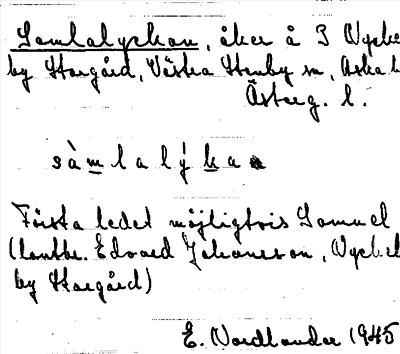 Samlalyckan, åker å 3 Nyckel
by Storgård, Västra Stenby sn, Aska h
Österg. l.
sàmlalýka
Första ledet möjligtvis Samuel
(lantbr. Edvard Johansson, Nyckel
by Storgård)
E. Nordlander 1945